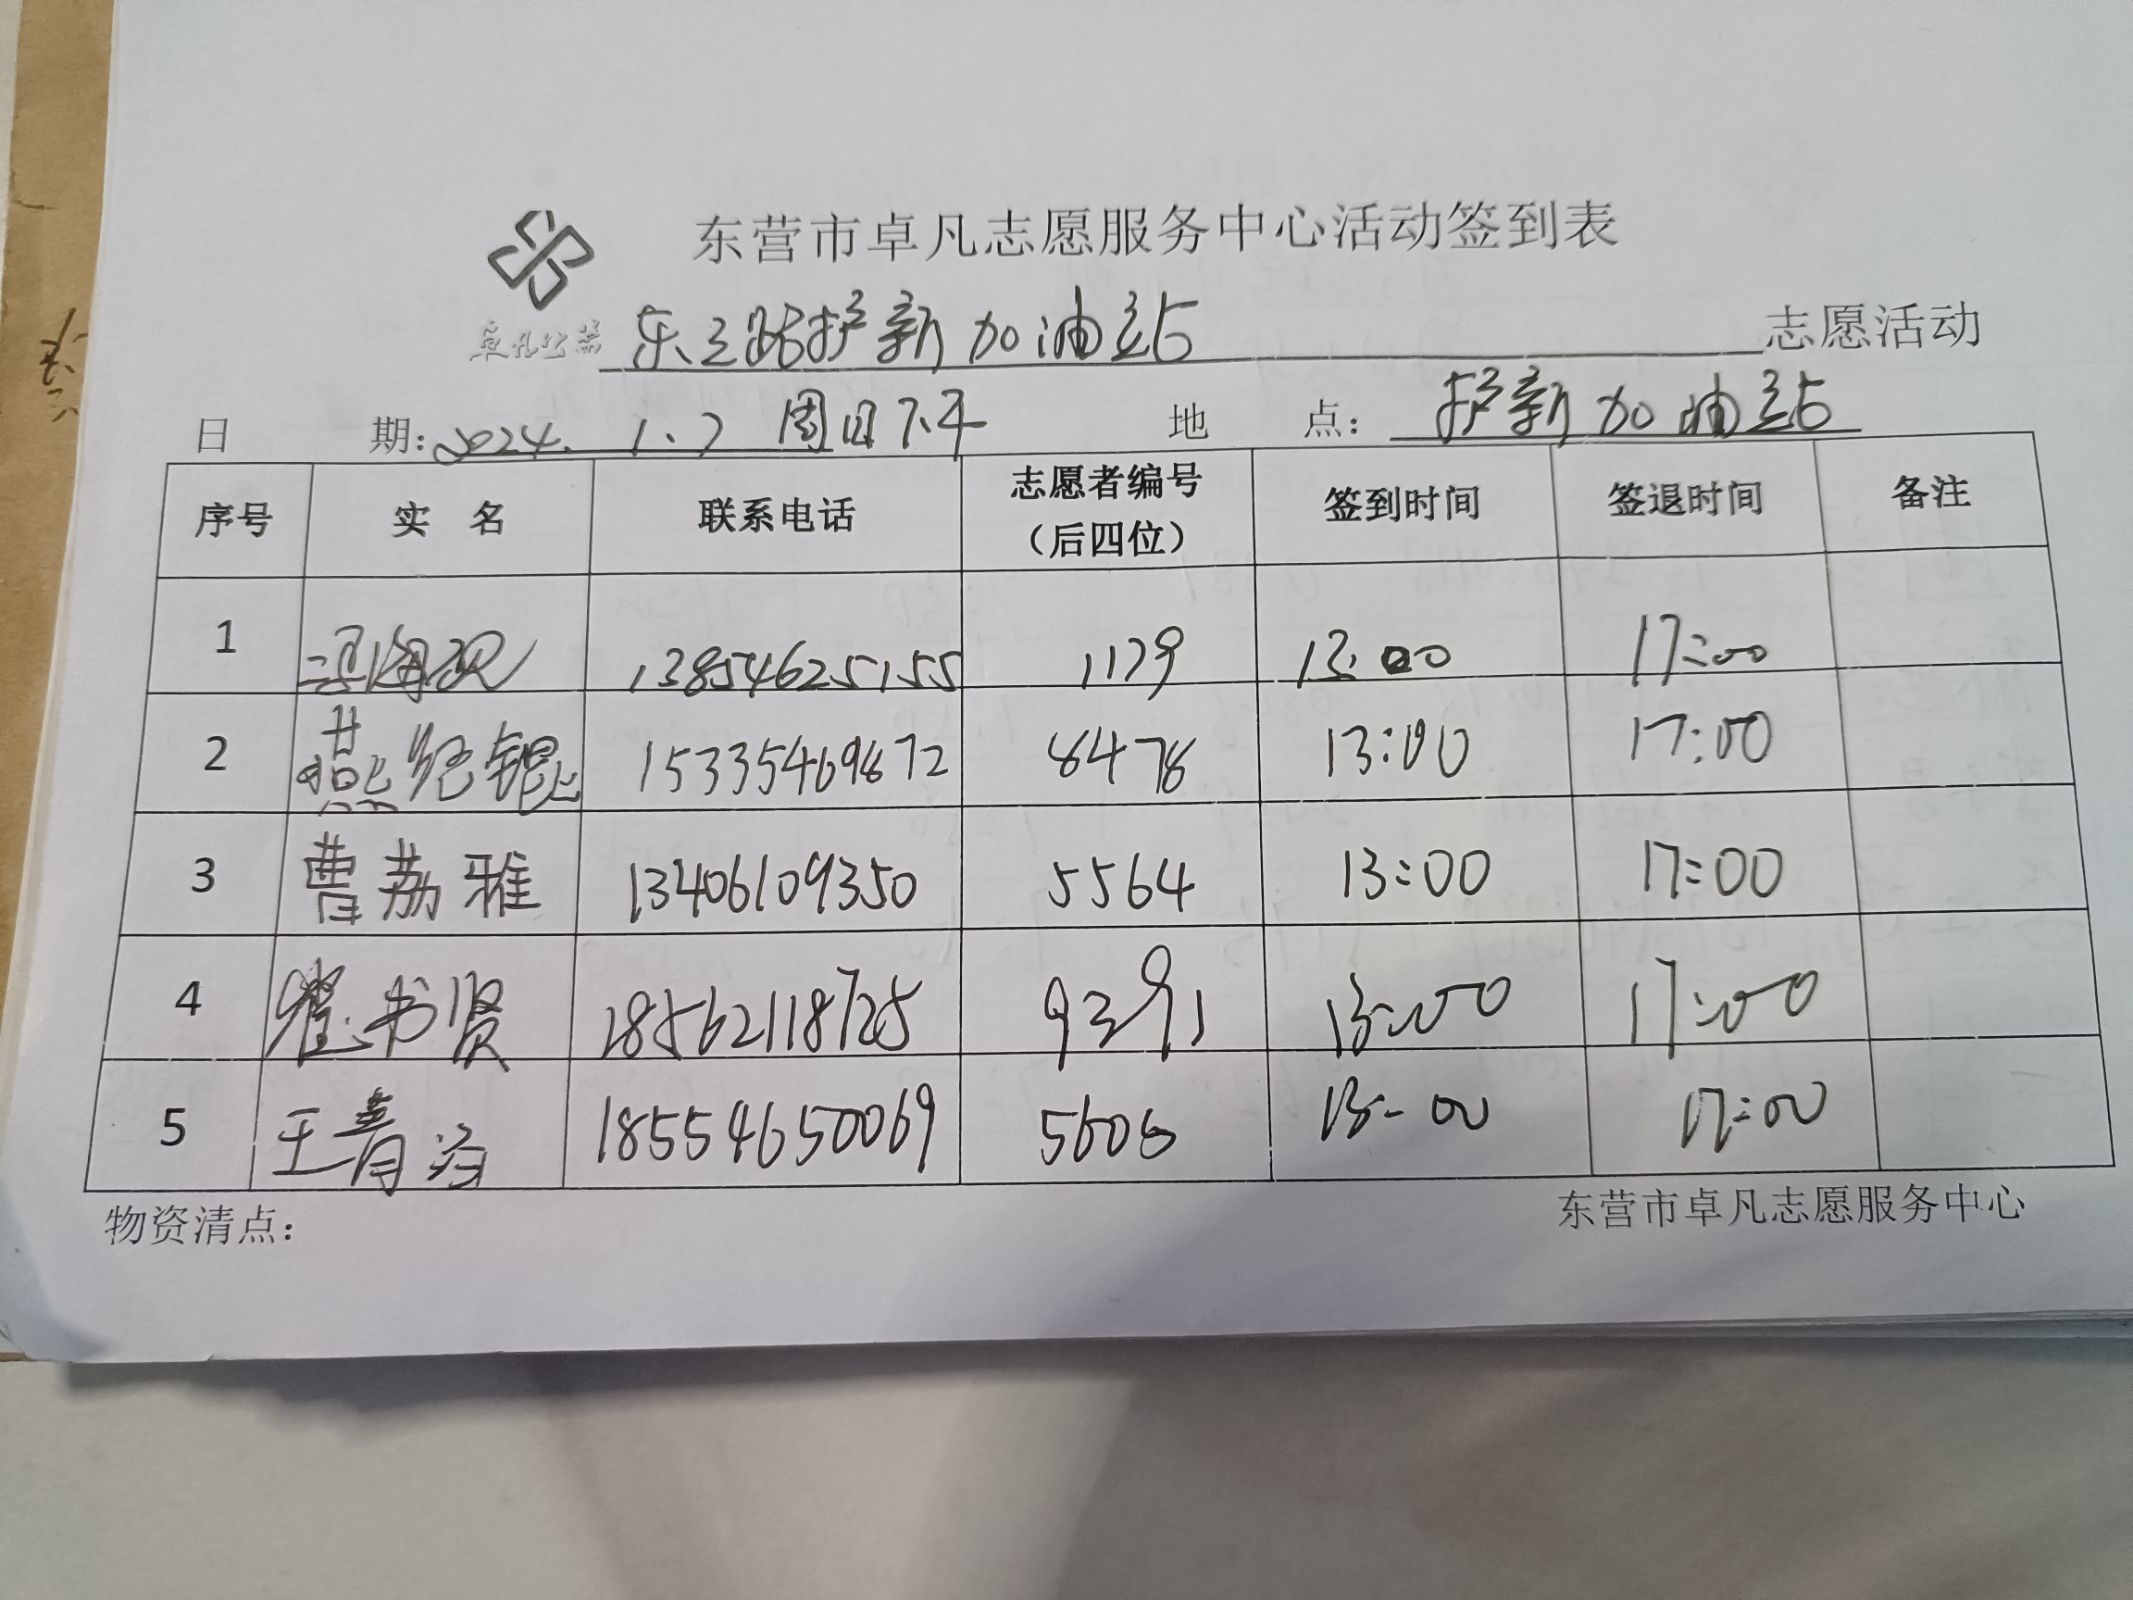 东营市卓凡志愿服务中心活动签到表
卓凡公益 东三路护新加油站 志愿活动
日 期: 2024. 1. 7 周日下午 地 点: 护新加油站
序号 实 名 联系电话 志愿者编号（后四位） 签到时间 签退时间 备注
1 13854625155 1179 13:00 17:00
2 燕纪锟 15335469872 8478 13:00 17:00
3 曹荔雅 13406109350 5564 13:00 17:00
4 书贤 18562118725 9391 13:00 17:00
5 王青 18554650069 5606 13:00 17:00
物资清点: 东营市卓凡志愿服务中心